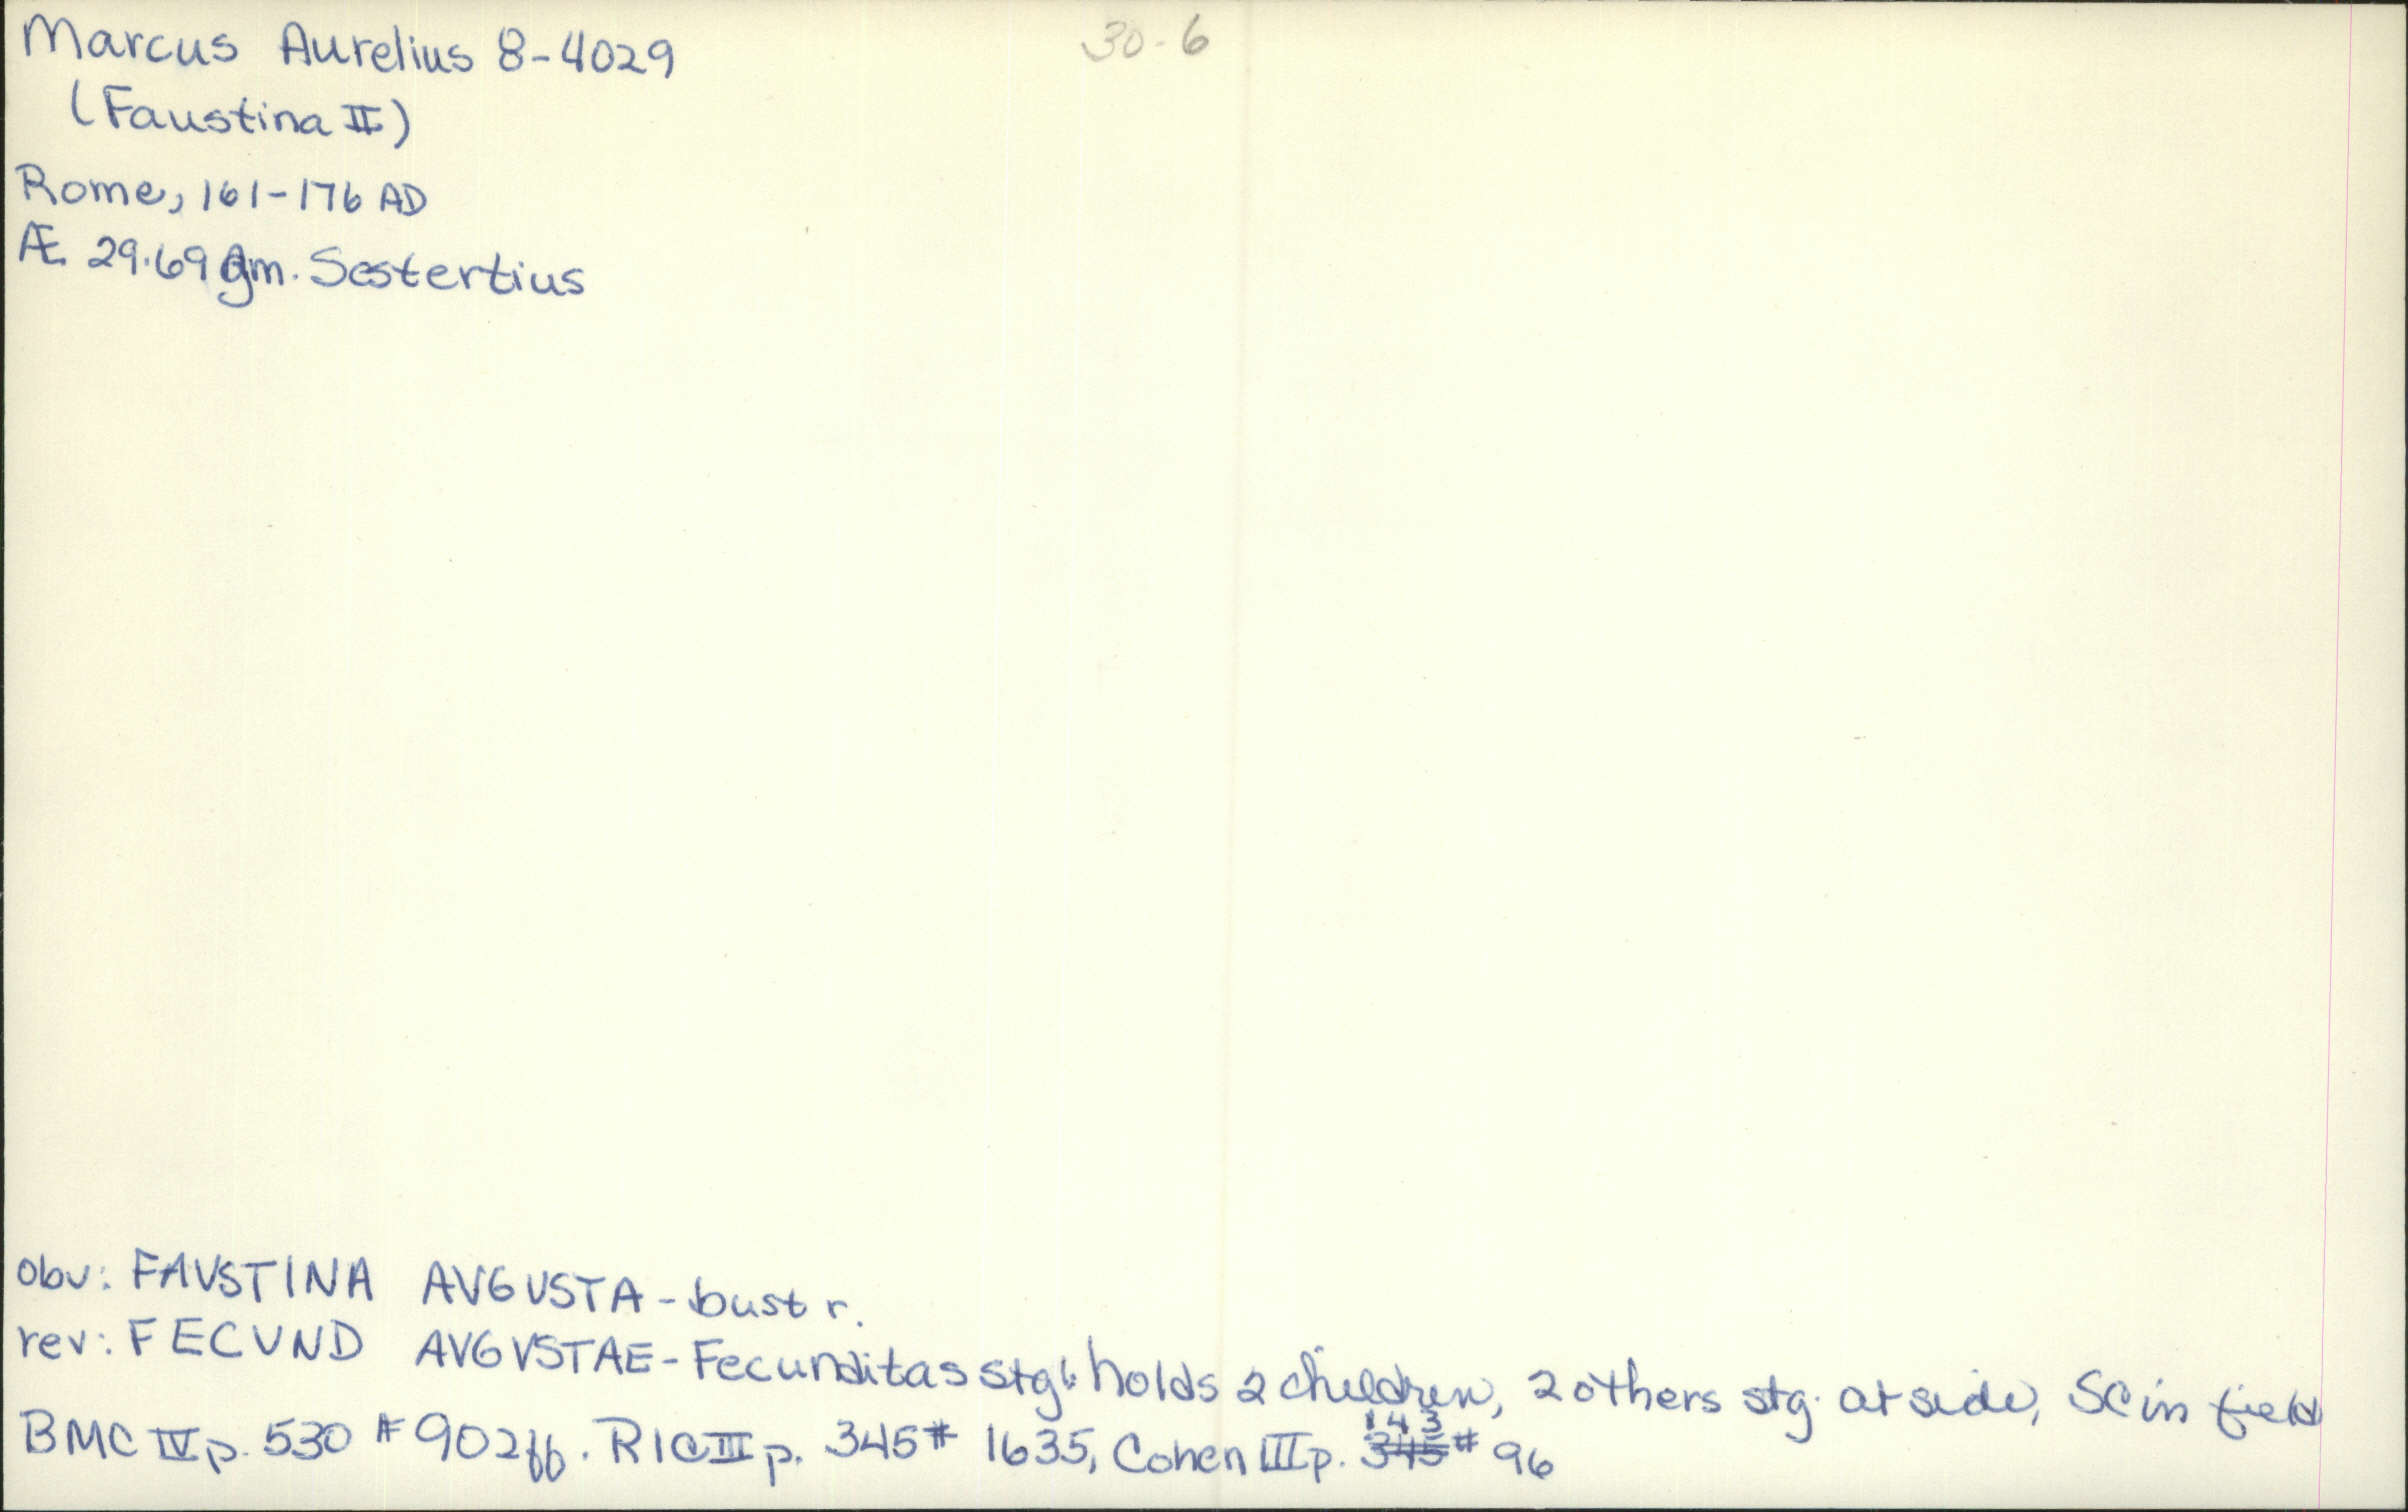 Marcus Aurelius 8-4029
30-6
(Faustina II)
Rome, 161-176 AD
Æ 29.69 gm. Sestertius
obv: FAVSTINA AVGVSTA - bust r.
rev: FECVND AVGVSTAE - Fecunditas stg l. holds 2 children, 2 others stg. at side, SC in field
143
BMC IV p. 530 # 902ff. RIC III p. 345 # 1635, Cohen III p. 345 # 96